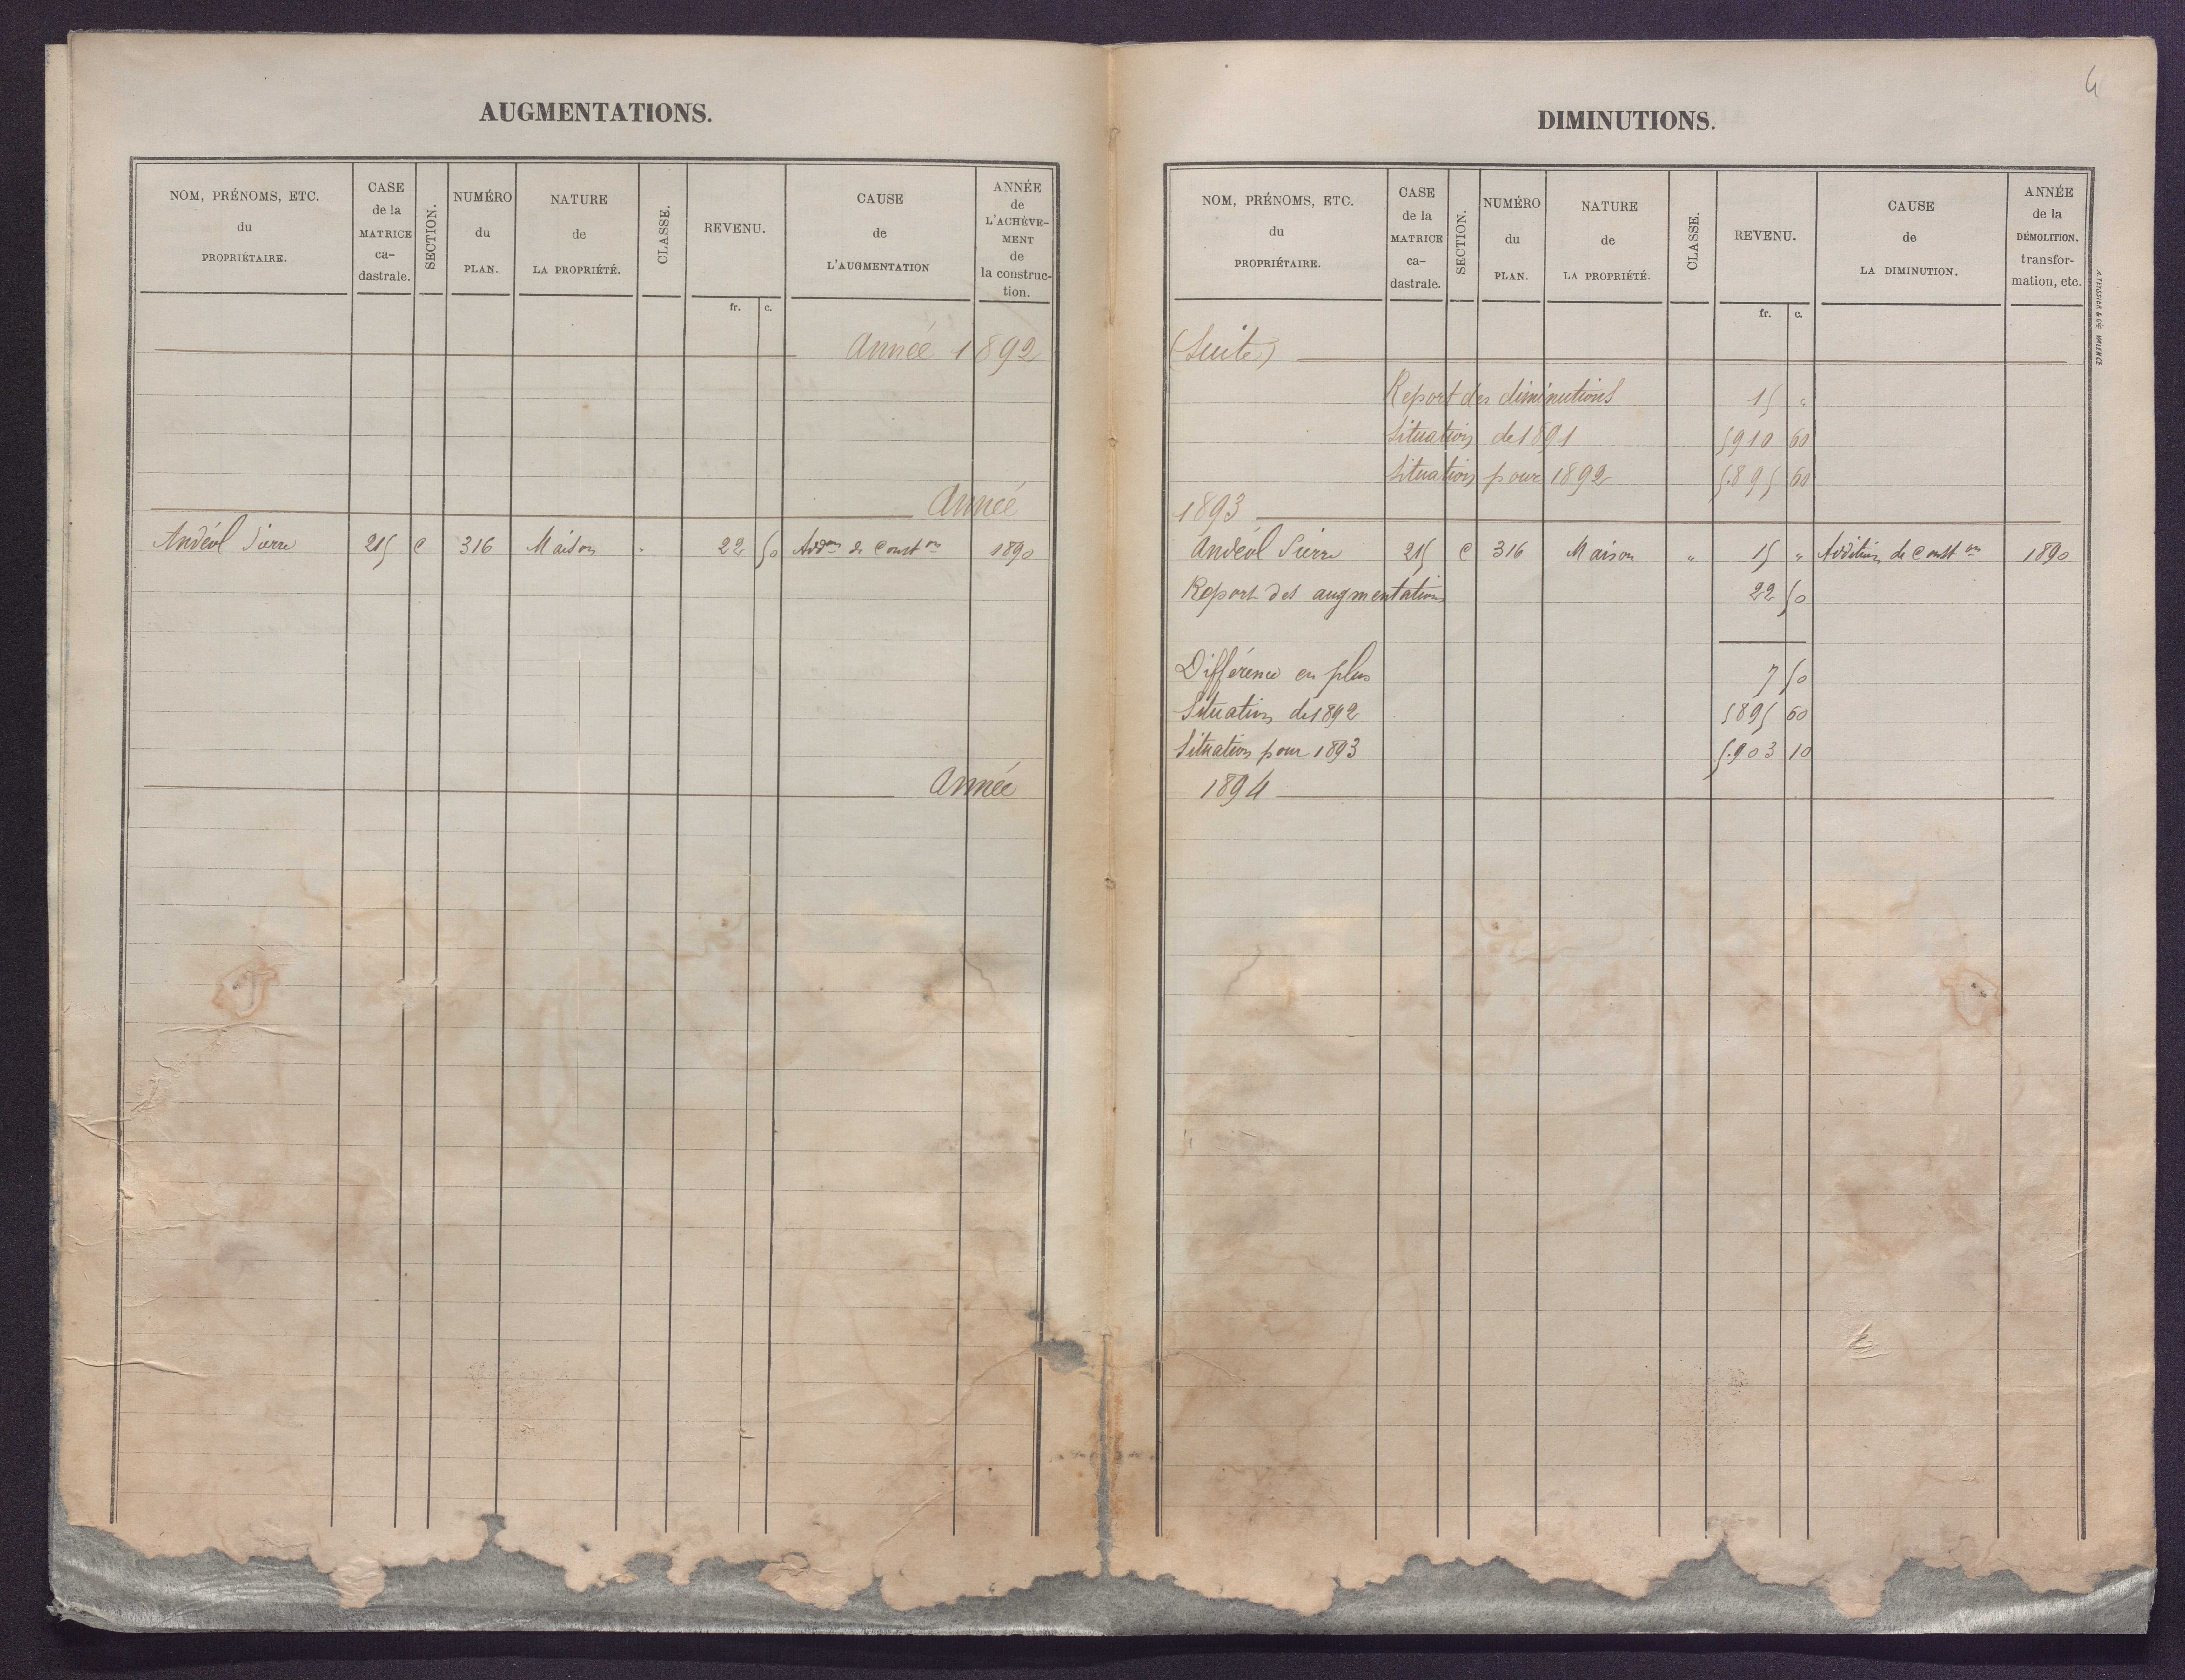 AUGMENTATIONS.
NOM, PRÉNOMS, ETC. du PROPRIÉTAIRE.
CASE de la MATRICE ca-dastrale.
SECTION.
NUMÉRO du PLAN.
NATURE de LA PROPRIÉTÉ.
CLASSE.
REVENU.
fr. c.
CAUSE de L'AUGMENTATION
ANNÉE de L'ACHÈVE-MENT de la construc-tion.
Année 1892
Année
Andéol Pierre 215 C 316 Maison " 22 50 Addon de Conston 1890
Année
4
DIMINUTIONS.
NOM, PRÉNOMS, ETC. du PROPRIÉTAIRE.
CASE de la MATRICE ca-dastrale.
SECTION.
NUMÉRO du PLAN.
NATURE de LA PROPRIÉTÉ.
CLASSE.
REVENU.
fr. c.
CAUSE de LA DIMINUTION.
ANNÉE de la DÉMOLITION. transfor-mation, etc.
(Suite)
Report des diminutions 15 "
Situation de 1891 5910 60
Situation pour 1892 5.895 60
1893
Andéol Pierre 215 C 316 Maison " 15 " Addition de Conston 1890
Report des augmentations 22 50
Différence en plus 7 50
Situation de 1892 5895 60
Situation pour 1893 5.903 10
1894